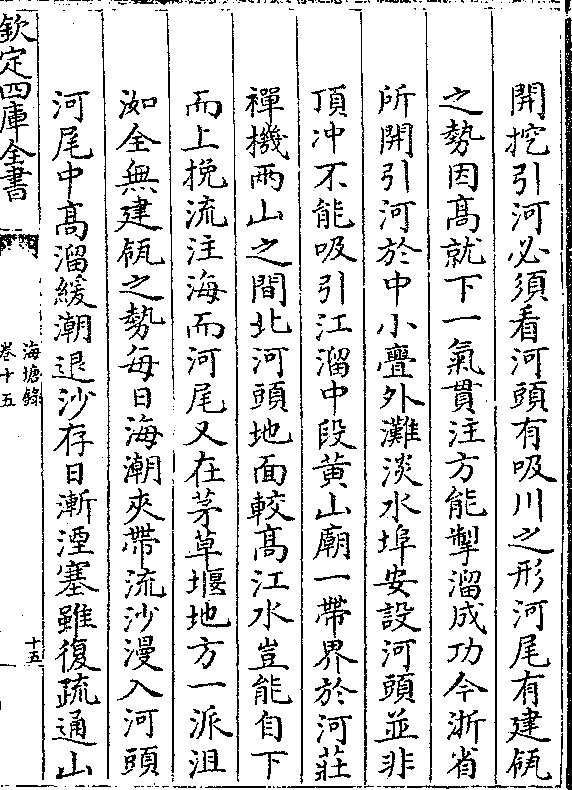 開挖引河必須看河頭有吸川之形河尾有建瓴
之勢因髙就下一氣貫注方能掣溜成功今浙省
所開引河於中小亹外灘淡水埠安設河頭並非
頂冲不能吸引江溜中段黄山廟一帶界於河莊
禪機兩山之間北河頭地面較髙江水豈能自下
而上挽流注海而河尾又在茅草堰地方一派沮
洳全無建瓴之勢每日海潮夾帶流沙漫入河頭
河尾中髙溜緩潮退沙存日漸湮塞雖復疏通山
欽定四庫全書
海塘錄
卷十五
十五